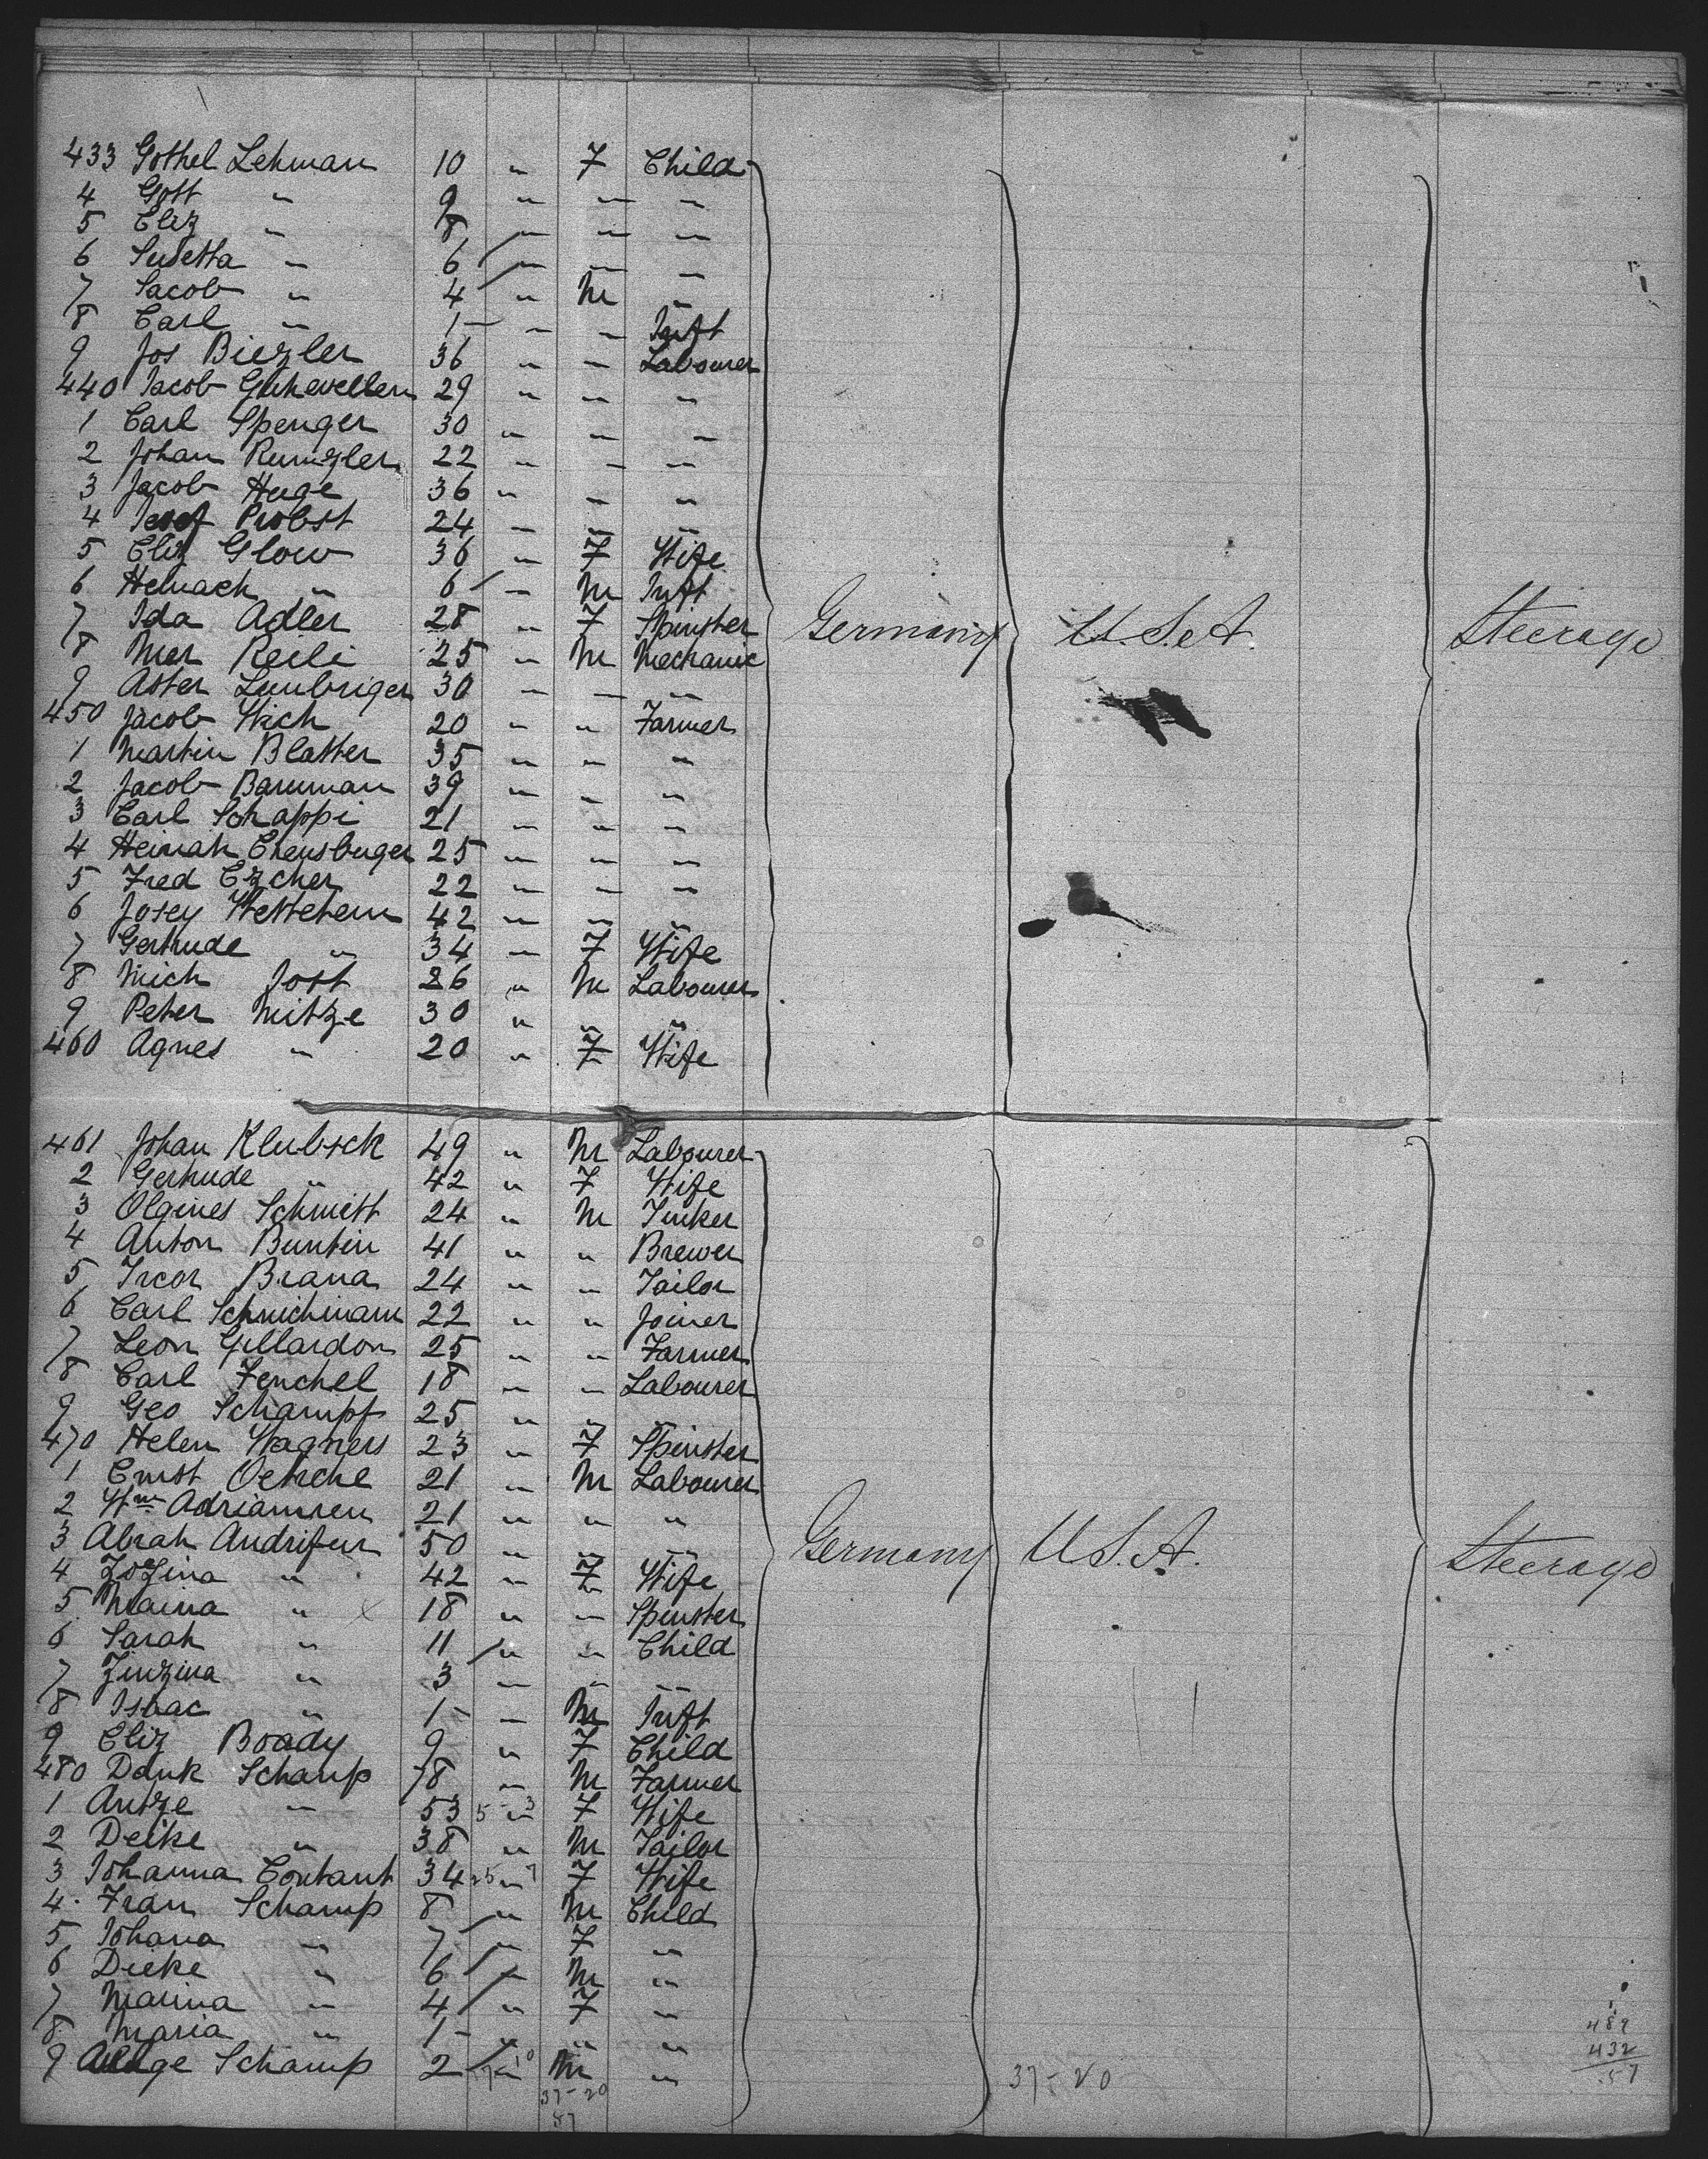 433 Gothel Lehman 10 " F Child
4 Gott " 9 " " "
5 Eliz " 8 " " "
6 Susetta " 6 " " "
7 Jacob " 4 " M "
8 Carl " 1 " " Inft
9 Jos Biezler 36 " " Labourer
440 Jacob 29 " " "
1 Carl Spenger 30 " " "
2 Johan Rumzler 22 " " "
3 Jacob Huge 36 " " "
4 Josef Probst 24 " " "
5 Eliz Glow 36 " F Wife
6 " 6 " M Inft
7 Ida Adler 28 " F Spinster Germany U.S.A. Steerage
8 Mer Reili 25 " M Mechanic
9 Aster 30 " " "
450 Jacob Wich 20 " " Farmer
1 Martin Blatter 35 " " "
2 Jacob Baruman 39 " " "
3 Carl Schappi 21 " " "
4 25 " " "
5 Fred Ezcher 22 " " "
6 Josey 42 " " "
7 Gertrude " 34 " F Wife
8 Mich Jost 26 " M Labourer
9 Peter Mitze 30 " " "
460 Agnes " 20 " F Wife
461 Johan Klubsck 49 " M Labourer
2 Gertrude " 42 " F Wife
3 Olgines Schmitt 24 " M
4 Anton Buntin 41 " " Brewer
5 Brana 24 " " Tailor
6 Carl 22 " " Joiner
7 Leon Gillardon 25 " " Farmer
8 Carl Fenchel 18 " " Labourer
9 Geo Schampf 25 " " "
470 Helen Wagners 23 " F Spinster
1 Ernst 21 " M Labourer
2 Wm Adriansen 21 " " "
3 Abrah 50 " " " Germany U.S.A. Steerage
4 Zozina " 42 " F Wife
5 Maina " 18 " " Spinster
6 Sarah " 11 " " Child
7 Zinzina " 3 " " "
8 Isaac " 1 " M Inft
9 Eliz Boady 9 " F Child
480 Dank Schamp 78 " M Farmer
1 Antze " 53 5 " 3 F Wife
2 Deike " 38 " M Tailor
3 Johanna Contant 34 25 " 7 F Wife
4 Fran Schamp 8 " M Child
5 Johana " 7 " F "
6 Dieke " 6 " M "
7 Marina " 4 " F "
8 Maria " 1 " " "
9 Schamp 2 " 10 M "
489
432
57
37-20
37-20
57